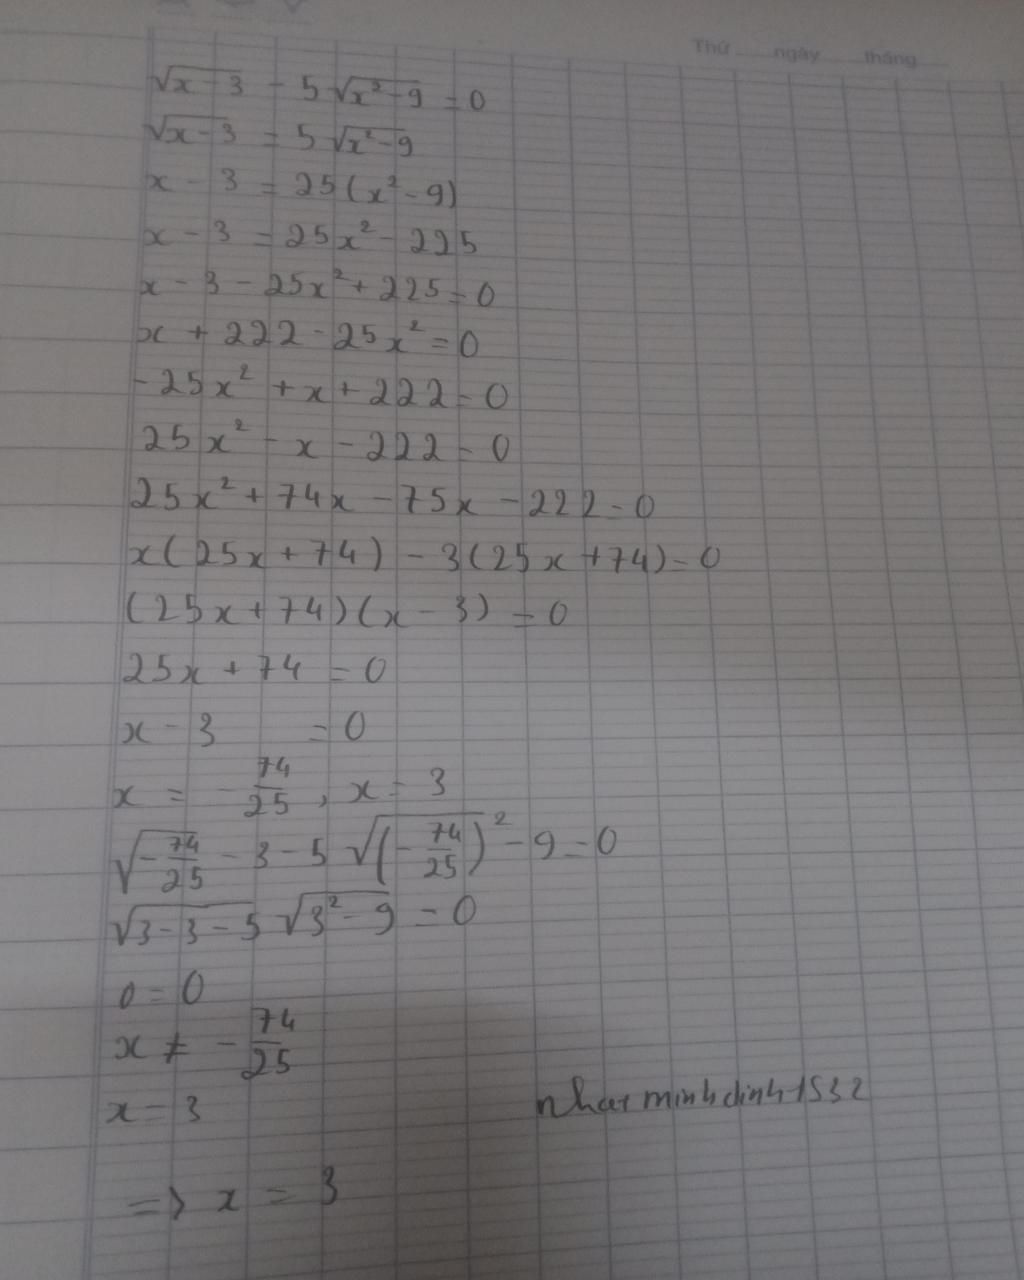 Thứ ngày tháng
√x - 3 - 5√x² - 9 = 0
√x - 3 = 5√x² - 9
x - 3 = 25(x² - 9)
x - 3 = 25x² - 225
x - 3 - 25x² + 225 = 0
x + 222 - 25x² = 0
-25x² + x + 222 = 0
25x² - x - 222 = 0
25x² + 74x - 75x - 222 = 0
x(25x + 74) - 3(25x + 74) = 0
(25x + 74)(x - 3) = 0
25x + 74 = 0
x - 3 = 0
x = -74/25, x = 3
√-74/25 - 3 - 5√(-74/25)² - 9 = 0
√3 - 3 - 5√3² - 9 = 0
0 = 0
x ≠ -74/25
x = 3
nhatminhdinh1532
=> x = 3